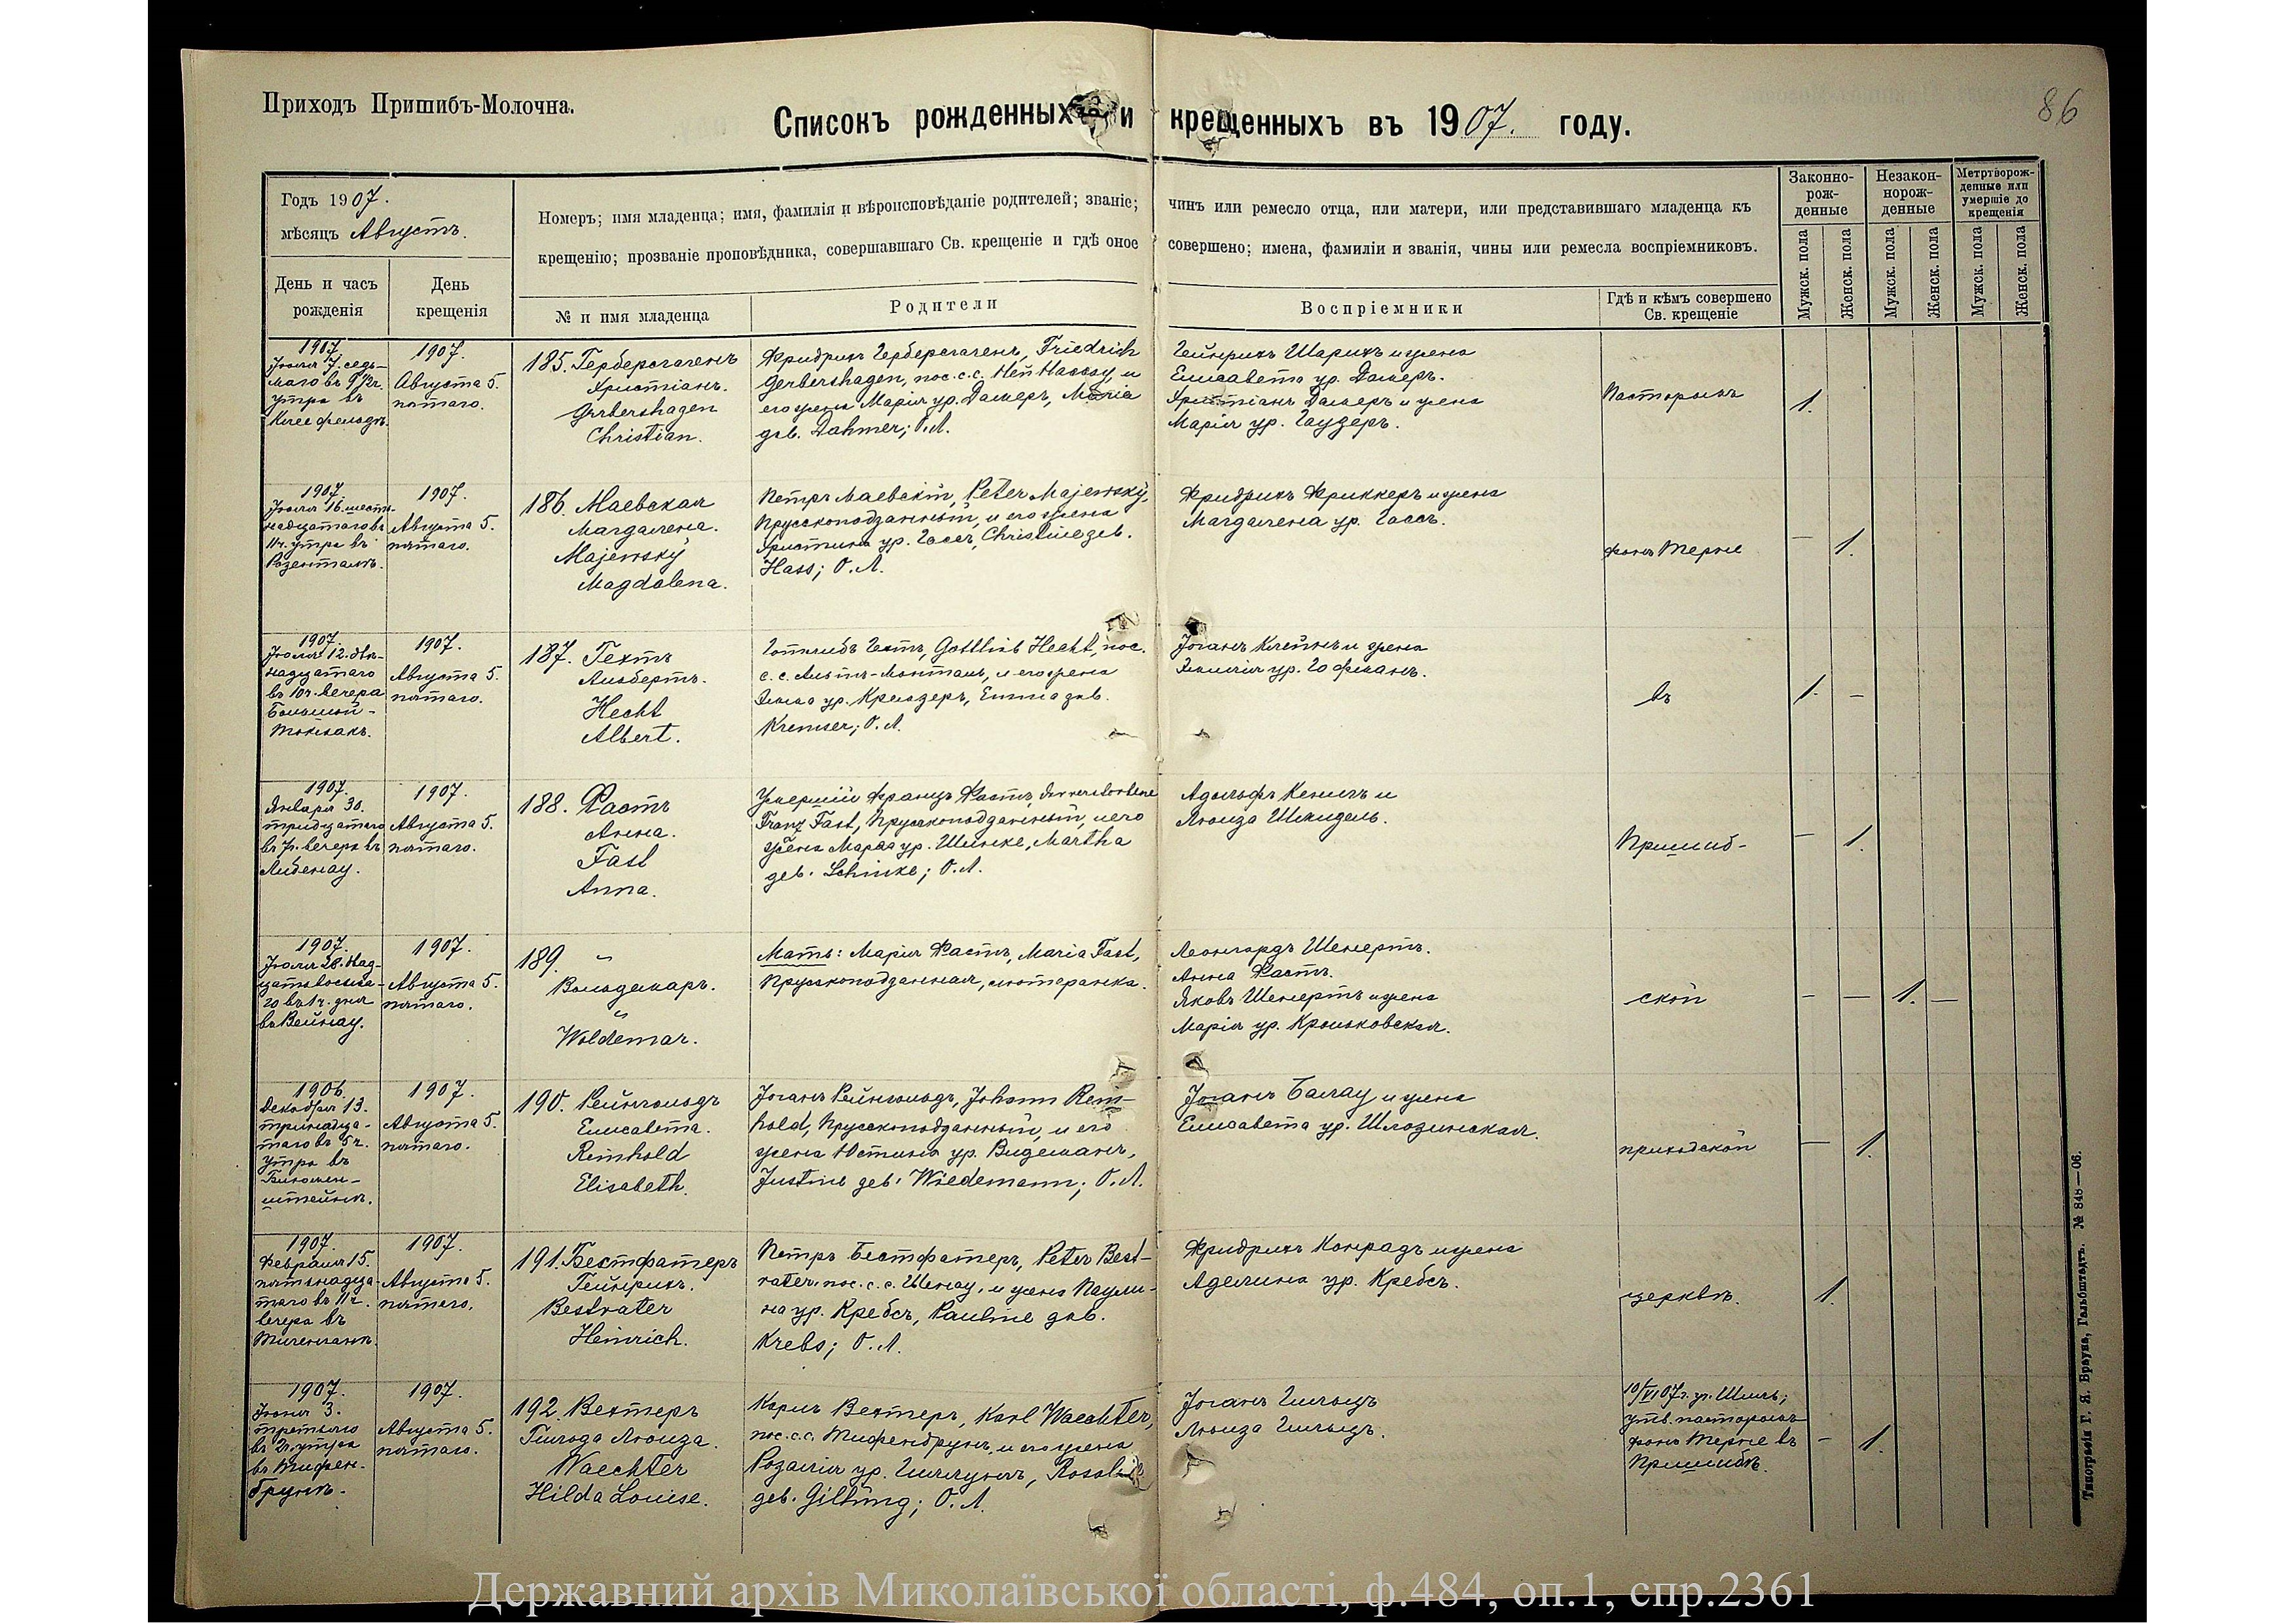 Приходъ Пришибъ-Молочна.
Списокъ рожденныхъ и крещенныхъ въ 1907. году.
86
Годъ 1907.
мѣсяцъ Августъ.
Номеръ; имя младенца; имя, фамилія и вѣроисповѣданіе родителей; званіе; чинъ или ремесло отца, или матери, или представившаго младенца къ
крещенію; прозваніе проповѣдника, совершавшаго Св. крещеніе и гдѣ оное совершено; имена, фамиліи и званія, чины или ремесла воспріемниковъ.
Законно-
рож-
денные
Незакон-
норож-
денные
Метртворож-
денные или
умершіе до
крещенія
День и часъ
рожденія
День
крещенія
№ и имя младенца
Родители
Воспріемники
Гдѣ и кѣмъ совершено
Св. крещеніе
Мужск. пола
Женск. пола
Мужск. пола
Женск. пола
Мужск. пола
Женск. пола
1907.
Іюля 7. седь-
маго въ 9 ½ ч.
утра въ
Клеефельдѣ.
1907.
Августа 5.
пятаго.
185. Герберсгагенъ
Христіанъ.
Gerbershagen
Christian.
Фридрихъ Герберсгагенъ, Friedrich
Gerbershagen, пос. с. с. Ней Нассау, и
его жена Марія ур. Дамеръ, Maria
geb. Dahmer; О. Л.
Гейнрихъ Шарихъ и жена
Елисавета ур. Дамеръ.
Христіанъ Дамеръ и жена
Марія ур. Гаузеръ.
Пасторомъ
1.
1907.
Іюля 16. шест-
надцатаго въ
11 ч. утра въ
Розенталѣ.
1907.
Августа 5.
пятаго.
186. Маевская
Магдалена.
Majewsky
Magdalena.
Петръ Маевскій, Peter Majewsky,
Прусскоподданный, и его жена
Христина ур. Гассъ, Christine geb.
Hass; О. Л.
Фридрихъ Фриккеръ и жена
Магдалена ур. Гассъ.
фонъ Терне
– 1.
1907.
Іюля 12. две-
надцатаго
въ 10 ч. вечера
Большой-
Токмакъ.
1907.
Августа 5.
пятаго.
187. Гехтъ
Альбертъ.
Hecht
Albert.
Готлибъ Гехтъ, Gottlieb Hecht, пос.
с. с. Альтъ-Монталь, и его жена
Эмма ур. Кремзеръ, Emma geb.
Kremser; О. Л.
Іоганъ Клейнъ и жена
Эмилія ур. Гофманъ.
въ
1. –
1907.
Января 30.
тридцатаго
въ 7 ч. вечера въ
Либенау.
1907.
Августа 5.
пятаго.
188. Фастъ
Анна.
Fast
Anna.
Умершій Францъ Фастъ, der verstorbene
Franz Fast, Прусскоподданный, и его
жена Марта ур. Шинке, Martha
geb. Schinke; О. Л.
Адольфъ Кенигъ и
Луиза Шмидель.
Пришиб-
– 1.
1907.
1907.
Августа 5.
пятаго.
въ Вейнау.
189. "
Вольдемаръ.
"
Woldemar.
Мать: Марія Фастъ, Maria Fast,
Прусскоподданная, лютеранка.
Леонгардъ Шенертъ.
Анна Фастъ.
Яковъ Шенертъ и жена
Марія ур.
ской
– – 1. –
1906.
Декабря 13.
тринадца-
таго въ 5 ч.
утра въ
Блюмен-
штейнѣ.
1907.
Августа 5.
пятаго.
190. Рейнгольдъ
Елисавета.
Reinhold
Elisabeth.
Іоганъ Рейнгольдъ, Johann Rein-
hold, Прусскоподданный, и его
жена Юстина ур. Видеманъ,
Justine geb. Wiedemann; О. Л.
Іоганъ Балау и жена
Елисавета ур. Шлозинская.
приходской
– 1.
1907.
Февраля 15.
пятьнадца-
таго въ 11 ч.
вечера въ
Тигенгагенъ.
1907.
Августа 5.
пятаго.
191. Бестфатеръ
Гейнрихъ.
Bestvater
Heinrich.
Петръ Бестфатеръ, Peter Best-
vater, пос. с. с. Шенау, и жена Паули-
на ур. Кребсъ, Pauline geb.
Krebs; О. Л.
Фридрихъ Конрадъ и жена
Аделина ур. Кребсъ.
церквѣ.
1.
1907.
третьяго
въ 2 ч. утра
въ Тифен-
брунѣ.
1907.
Августа 5.
пятаго.
192. Вехтеръ
Гильда Луиза.
Waechter
Hilda Louise.
Карлъ Вехтеръ, Karl Waechter,
пос. с. с. Тифенбрунъ, и его жена
Розалія ур. Rosalie
geb. О. Л.
Іоганъ Гильцъ
Луиза Гильцъ.
утв. пасторомъ
фонъ Терне въ
Пришибѣ.
– 1.
Типографія Г. Я. Брауна, Гальбштадтъ. № 848—06.
Державний архів Миколаївської області, ф.484, оп.1, спр.2361